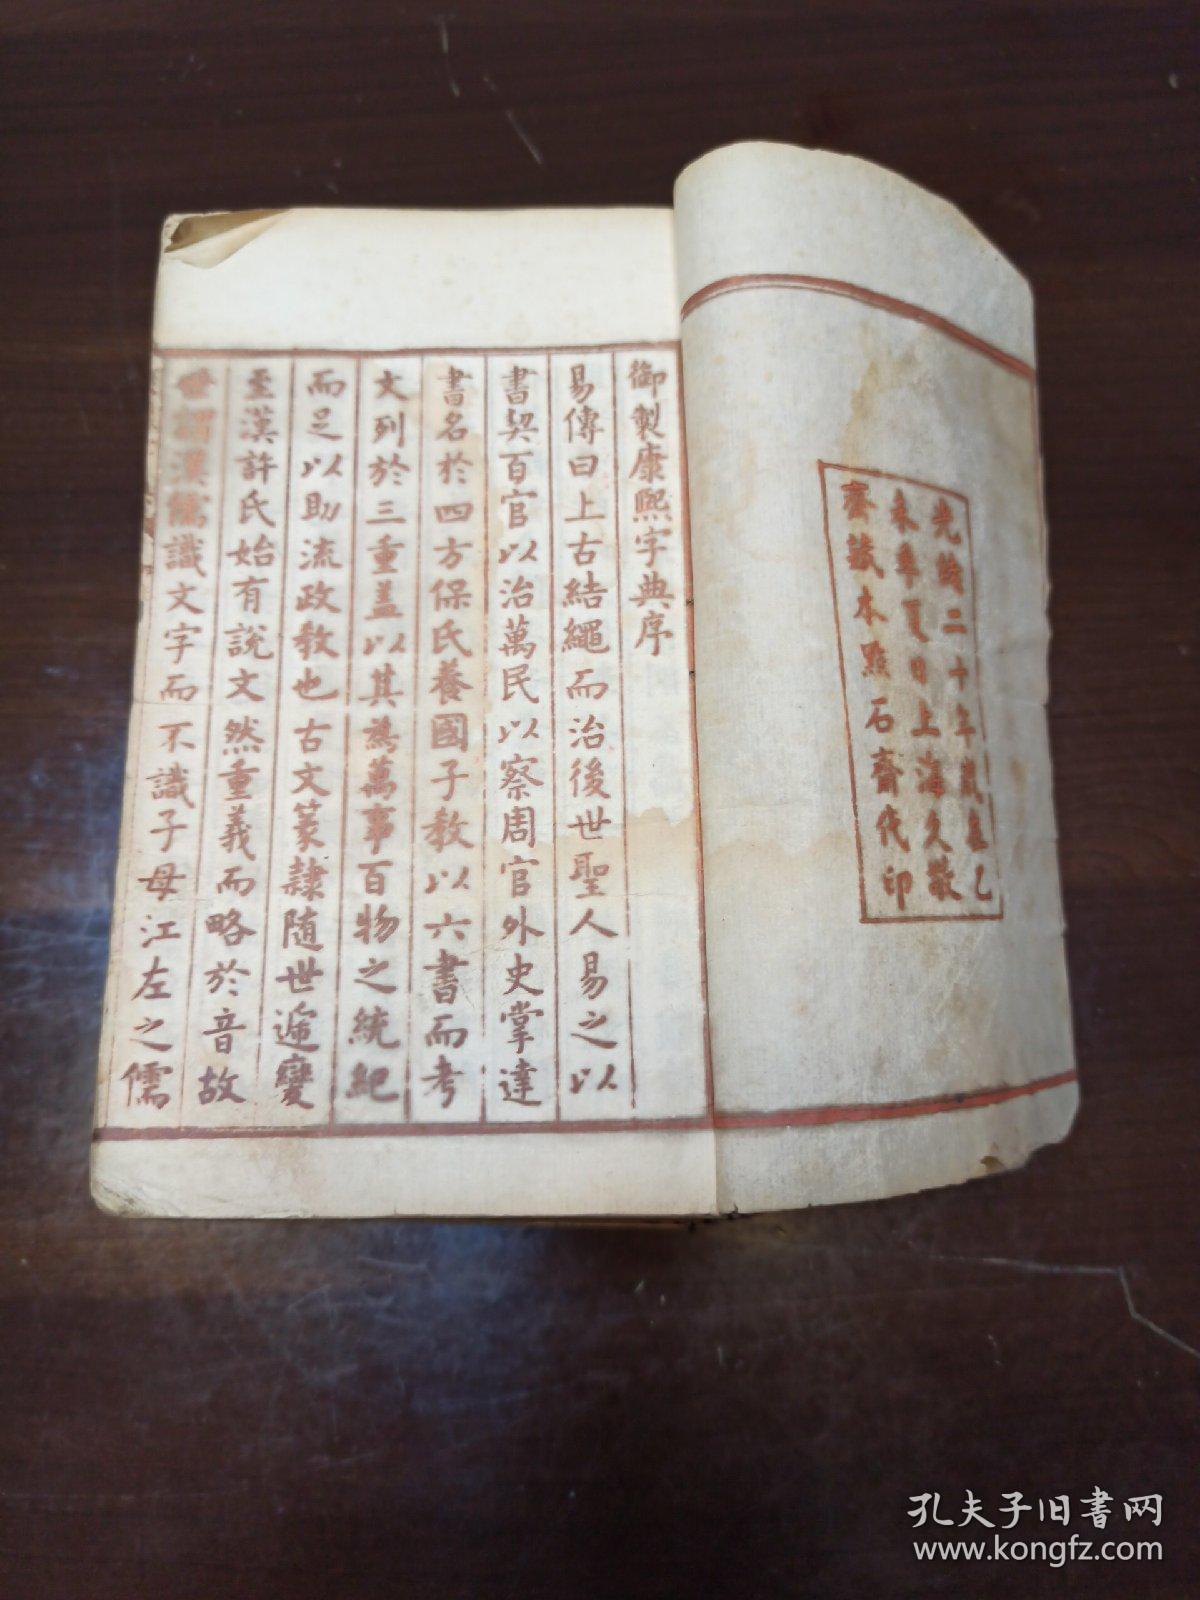 光緒二十年歲在乙
未季夏日上海久敬
齋藏本點石齋代印
御製康熙字典序
易傳曰上古結繩而治後世聖人易之以
書契百官以治萬民以察周官外史掌達
書名於四方保氏養國子教以六書而考
文列於三重蓋以其爲萬事百物之統紀
而足以助流政教也古文篆隸隨世遞變
至漢許氏始有說文然重義而略於音故
世謂漢儒識文字而不識子母江左之儒
孔夫子旧书网
www.kongfz.com